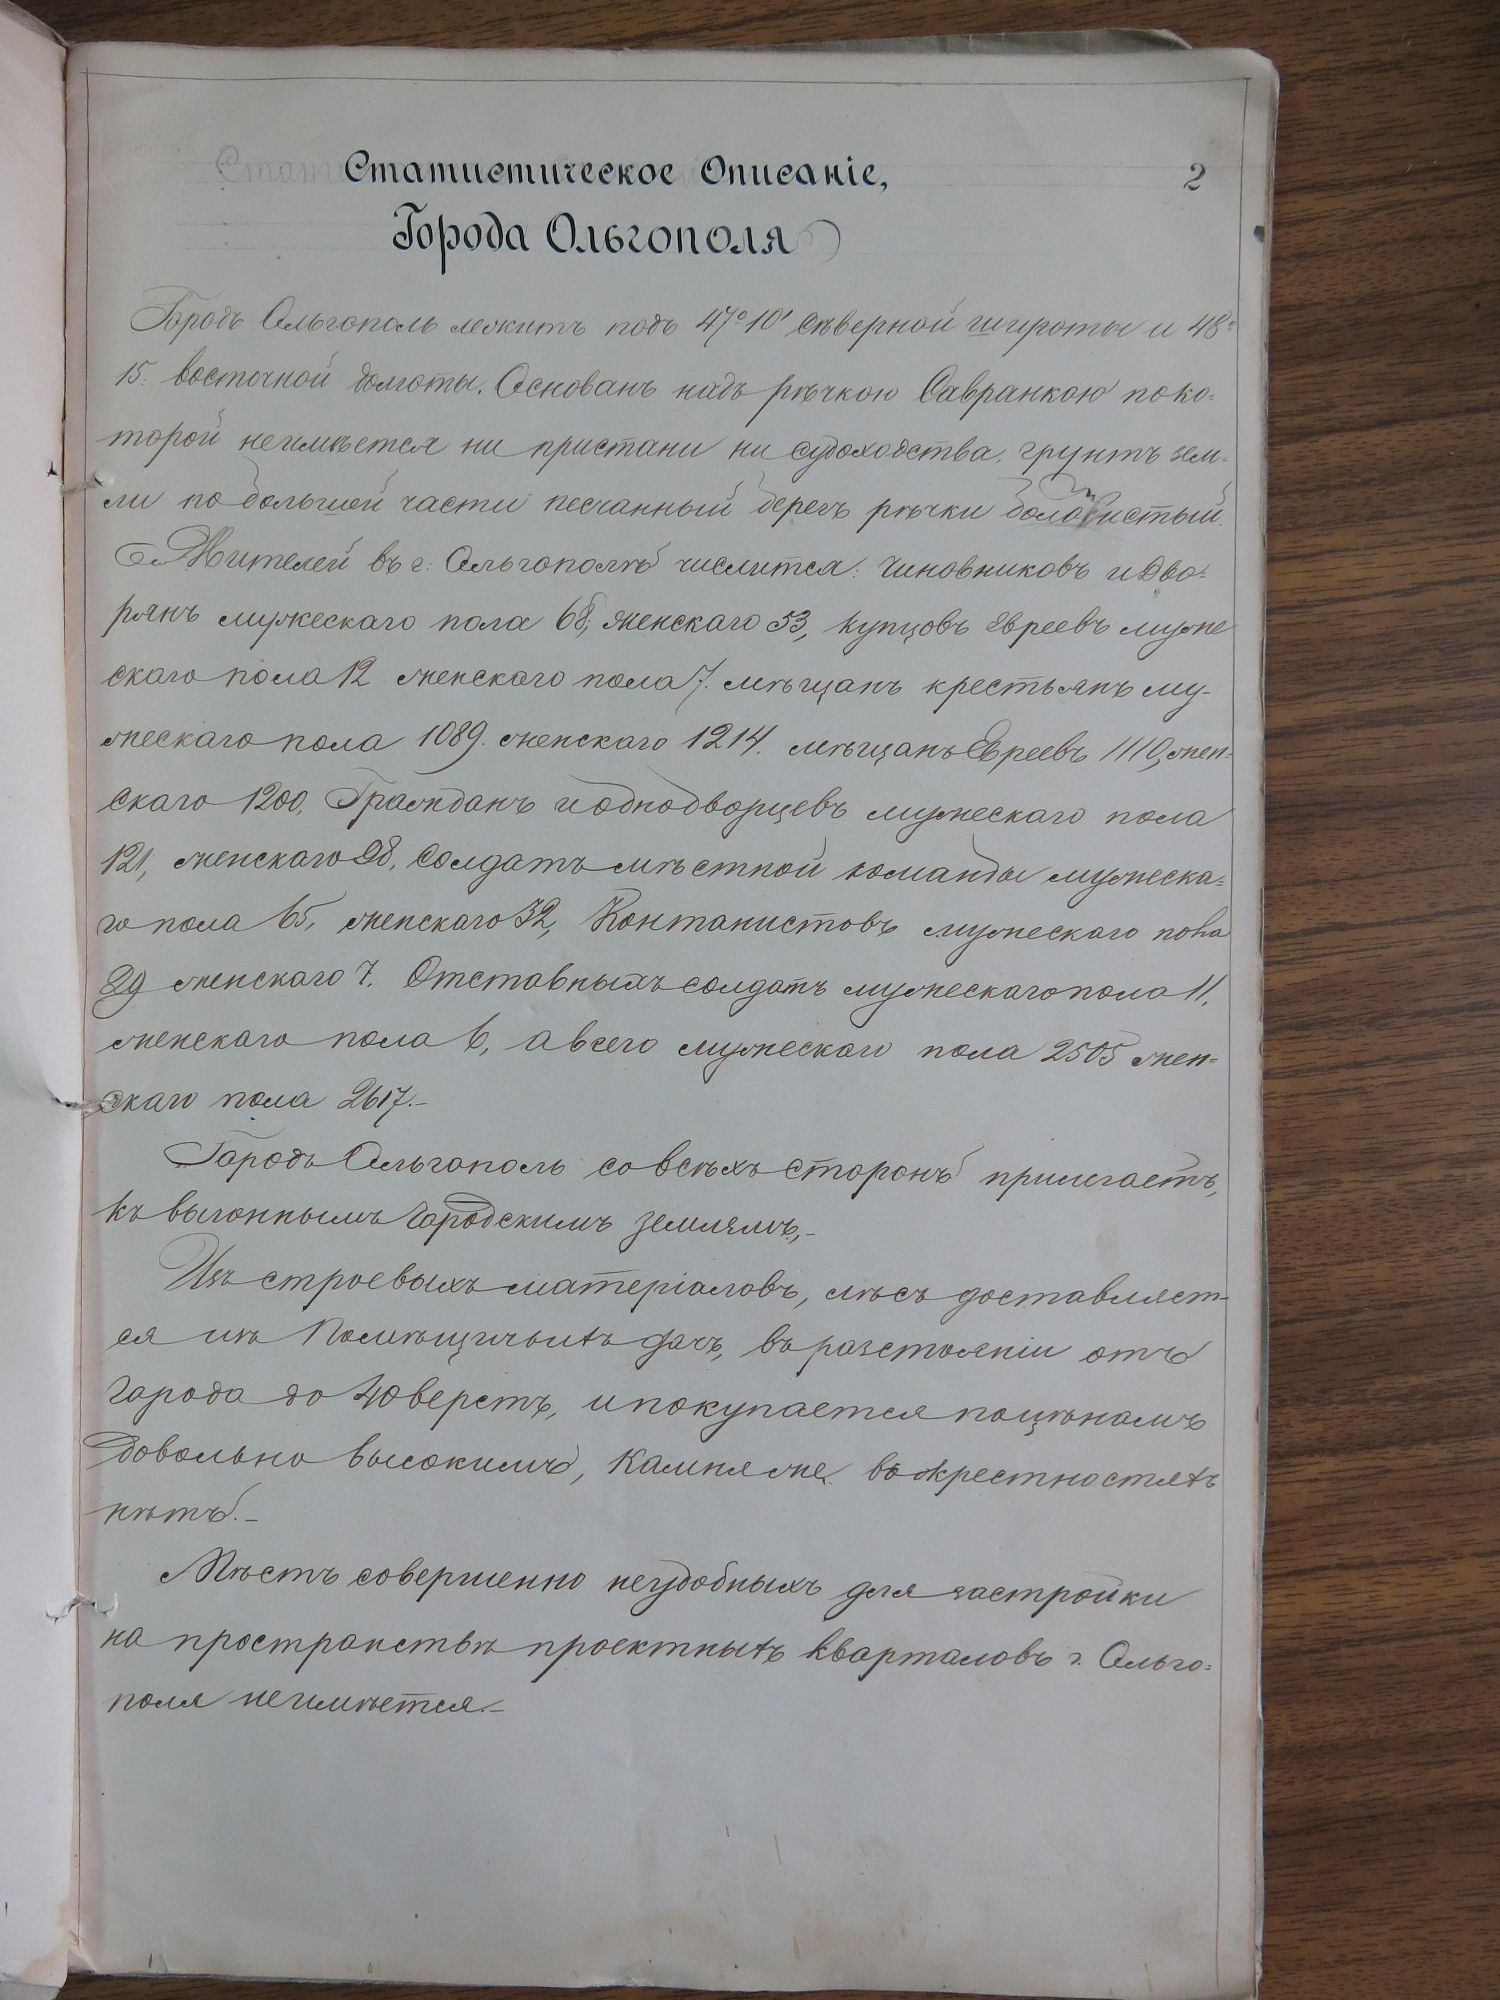 Статистическое Описаніе,
2
Города Ольгополя
Городъ Ольгополь лежитъ подъ 47° 10' сѣверной широты и 48°
15. восточной долготы. Основанъ надъ рѣчкою Савранкою по ко-
торой неимѣется ни пристани ни судоходства. грунтъ зем-
ли по большей части песчанный берегъ рѣчки
Жителей въ г. Ольгополѣ числится: Чиновниковъ и Дво-
рянъ мужескаго пола 68, женскаго 53, купцовъ евреевъ муже
скаго пола 12 женскаго пола 7. мѣщанъ крестьянъ му-
жескаго пола 1089. женскаго 1214. мѣщанъ Евреевъ 1110, жен-
скаго 1200, Гражданъ и однодворцевъ мужескаго пола
121, женскаго 98, Солдатъ мѣстной команды мужеска-
го пола 65, женскаго 32, Контанистовъ мужескаго пола
29 женскаго 7. Отставныхъ солдатъ мужескаго пола 11,
женскаго пола 6, а всего мужескаго пола 2505 жен-
скаго пола 2617.-
Городъ Ольгополь со всѣхъ сторонъ прилегаетъ,
къ выгоннымъ городскимъ землямъ,-
Изъ строевыхъ матеріаловъ, лѣсъ доставляет-
ся изъ Помѣщичьихъ дачъ, въ разстояніи отъ
города до 40 верстъ, и покупается поцѣнамъ
довольно высокимъ, Камня же въ окрестностяхъ
нѣтъ.-
Мѣстъ совершенно неудобныхъ для застройки
на пространствѣ проектныхъ кварталовъ г. Ольго-
поля неимѣется.-